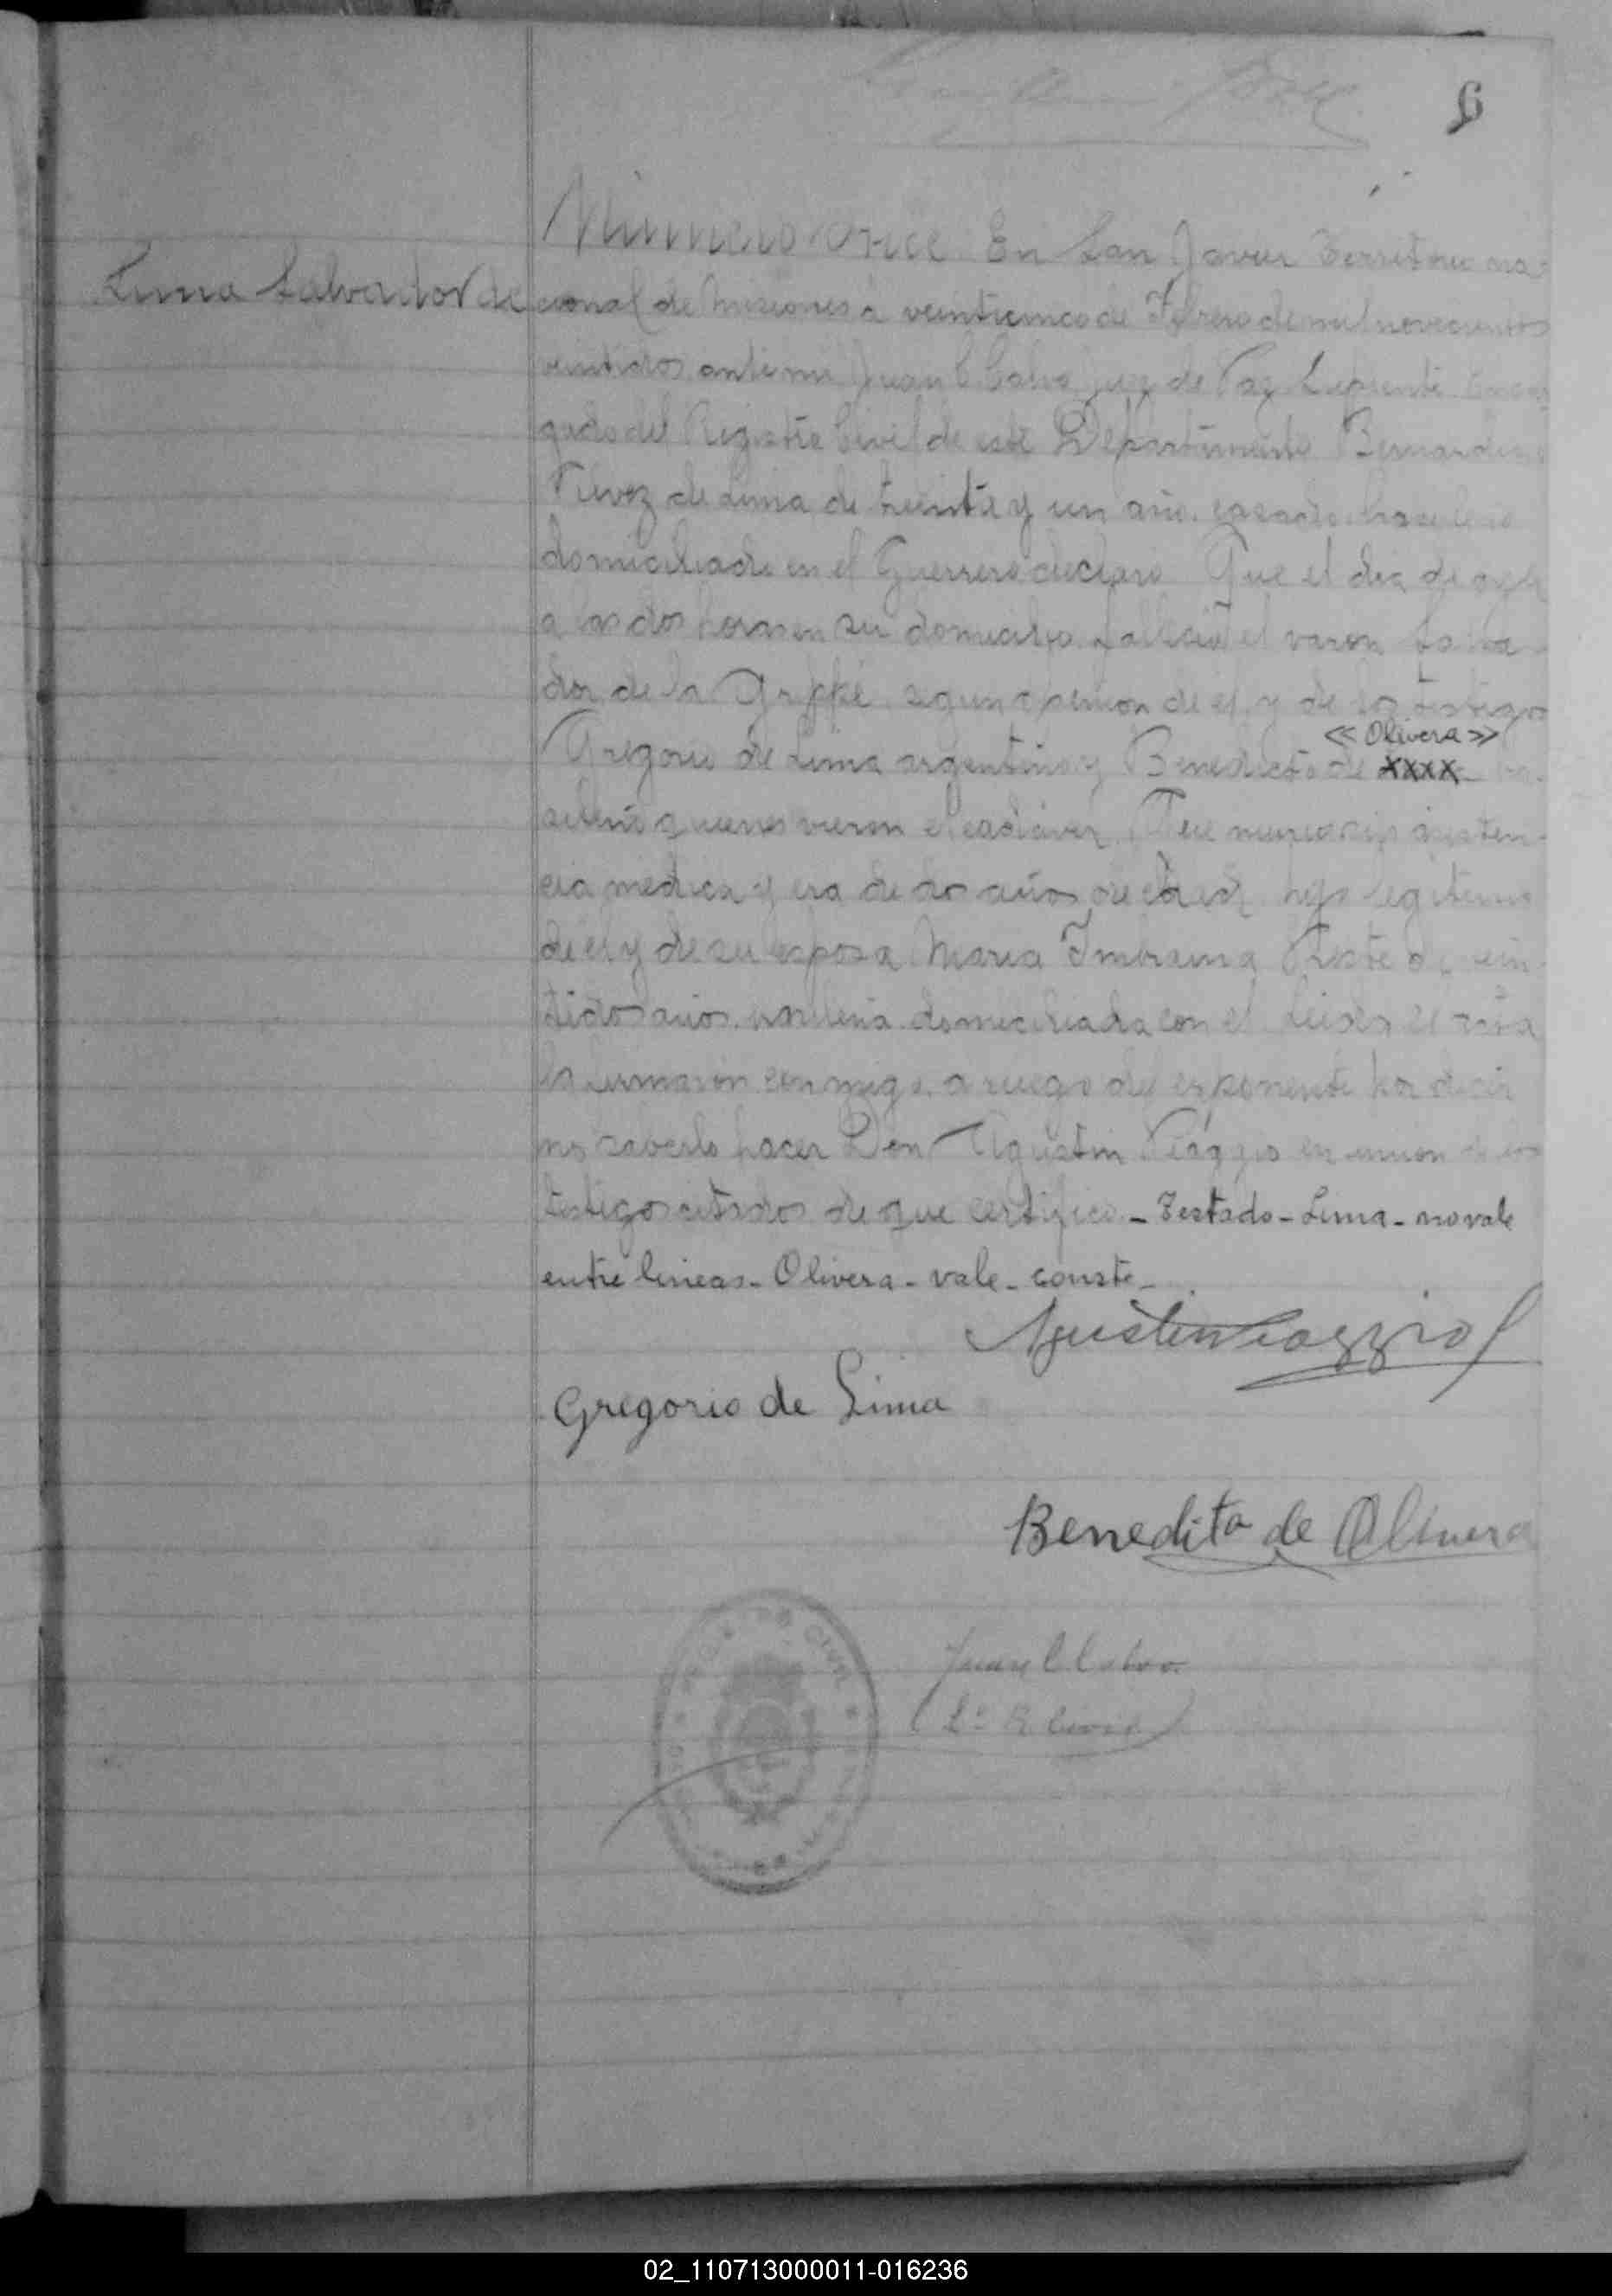 6
Lima Salvador de
Número once. En San Javier Territorio na-
cional de Misiones a veinticinco de Febrero de mil novecientos
veintidos, ante mi Juan C. Calvo Juez de Paz Suplente Encar
gado del Registro Civil de este Departamento Bernardino
de Lima de treinta y un año casado brasilero
domiciliado en el Guerrero declaro Que el dia de oy
a las dos horas en su domicilio fallecio el varon Salva
dor de la Grippe segun opinion de el y de los testigos
« Olivera »
Gregorio de Lima argentino y Benedicto de xxxx bra-
sileño quienes vieron el cadáver Que murio sin asisten-
cia medica y era de dos años de edad hijo legitimo
de el y de su esposa Maria de vein
tidos años brasileña domiciliada con el Leida el acta
la firmaron conmigo, a ruego del exponente por decir
no saberlo hacer Don Agustin Piaggio en union de los
testigos citados de que certifico - Testado - Lima - no vale
entre lineas - Olivera - vale - conste -
Agustin Piaggio
Gregorio de Lima
Benedito de Olivera
Juan C Calvo
02_110713000011-016236